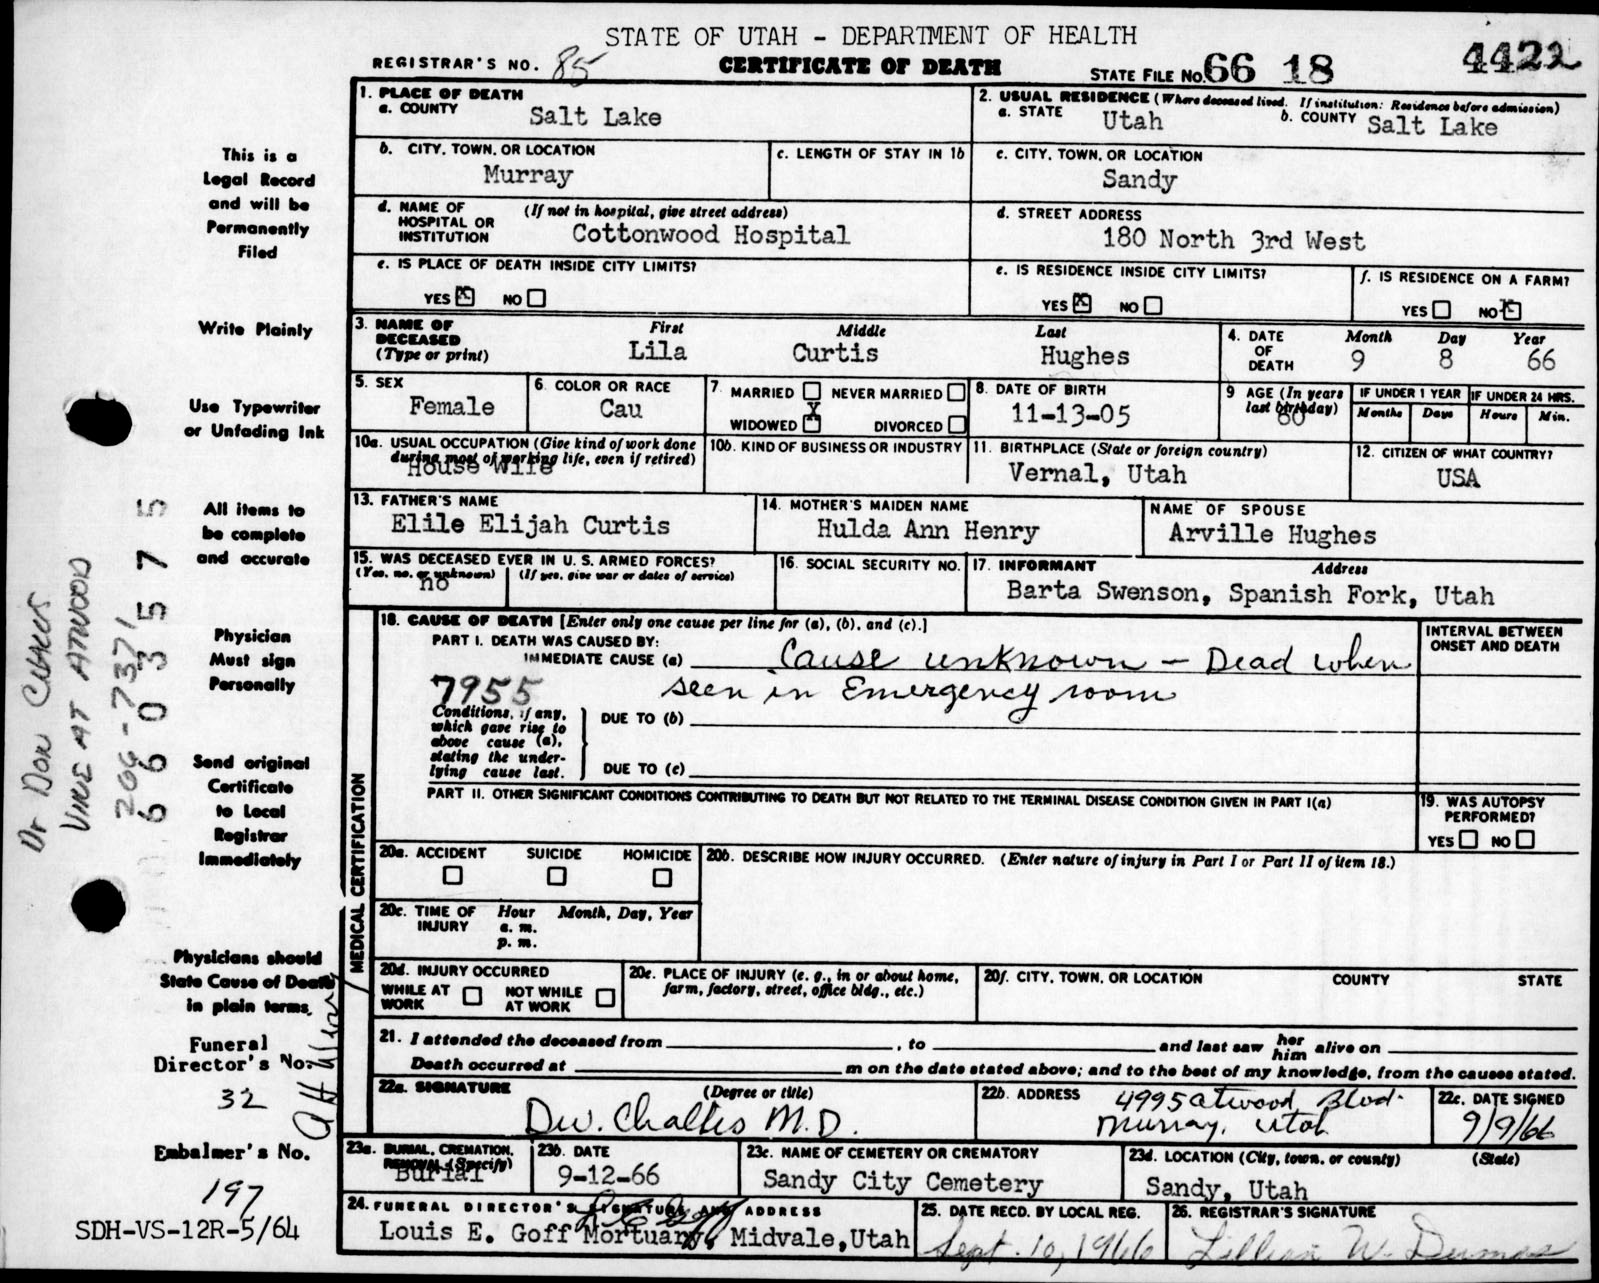 STATE OF UTAH - DEPARTMENT OF HEALTH
REGISTRAR'S NO. 85
CERTIFICATE OF DEATH
STATE FILE NO. 66 18 4422
1. PLACE OF DEATH
a. COUNTY Salt Lake
2. USUAL RESIDENCE (Where deceased lived. If institution: Residence before admission)
a. STATE Utah b. COUNTY Salt Lake
b. CITY, TOWN, OR LOCATION Murray
c. LENGTH OF STAY IN 1b
c. CITY, TOWN, OR LOCATION Sandy
d. NAME OF HOSPITAL OR INSTITUTION (If not in hospital, give street address)
Cottonwood Hospital
d. STREET ADDRESS
180 North 3rd West
e. IS PLACE OF DEATH INSIDE CITY LIMITS?
YES X NO
e. IS RESIDENCE INSIDE CITY LIMITS?
YES X NO
f. IS RESIDENCE ON A FARM?
YES NO X
3. NAME OF DECEASED (Type or print)
First Middle Last
Lila Curtis Hughes
4. DATE OF DEATH
Month Day Year
9 8 66
5. SEX
Female
6. COLOR OR RACE
Cau
7. MARRIED NEVER MARRIED
WIDOWED X DIVORCED
8. DATE OF BIRTH
11-13-05
9 AGE (In years last birthday)
60
IF UNDER 1 YEAR
Months Days
IF UNDER 24 HRS.
Hours Min.
10a. USUAL OCCUPATION (Give kind of work done during most of working life, even if retired)
House Wife
10b. KIND OF BUSINESS OR INDUSTRY
11. BIRTHPLACE (State or foreign country)
Vernal, Utah
12. CITIZEN OF WHAT COUNTRY?
USA
13. FATHER'S NAME
Elile Elijah Curtis
14. MOTHER'S MAIDEN NAME
Hulda Ann Henry
NAME OF SPOUSE
Arville Hughes
15. WAS DECEASED EVER IN U. S. ARMED FORCES?
(Yes, no, or unknown) (If yes, give war or dates of service)
no
16. SOCIAL SECURITY NO.
17. INFORMANT Address
Barta Swenson, Spanish Fork, Utah
MEDICAL CERTIFICATION
18. CAUSE OF DEATH [Enter only one cause per line for (a), (b), and (c).]
PART I. DEATH WAS CAUSED BY:
IMMEDIATE CAUSE (a) Cause unknown - Dead when
seen in Emergency room
7955
Conditions, if any, which gave rise to above cause (a), stating the underlying cause last.
DUE TO (b)
DUE TO (c)
INTERVAL BETWEEN ONSET AND DEATH
PART II. OTHER SIGNIFICANT CONDITIONS CONTRIBUTING TO DEATH BUT NOT RELATED TO THE TERMINAL DISEASE CONDITION GIVEN IN PART I(a)
19. WAS AUTOPSY PERFORMED?
YES NO
20a. ACCIDENT SUICIDE HOMICIDE
20b. DESCRIBE HOW INJURY OCCURRED. (Enter nature of injury in Part I or Part II of item 18.)
20c. TIME OF INJURY Hour Month, Day, Year
a. m.
p. m.
20d. INJURY OCCURRED
WHILE AT WORK NOT WHILE AT WORK
20e. PLACE OF INJURY (e. g., in or about home, farm, factory, street, office bldg., etc.)
20f. CITY, TOWN, OR LOCATION COUNTY STATE
21. I attended the deceased from , to and last saw her him alive on
Death occurred at m on the date stated above; and to the best of my knowledge, from the causes stated.
22a. SIGNATURE (Degree or title)
M.D.
22b. ADDRESS 4995 Atwood Blvd.
Murray, Utah
22c. DATE SIGNED
9/9/66
23a. BURIAL, CREMATION, REMOVAL (Specify)
Burial
23b. DATE
9-12-66
23c. NAME OF CEMETERY OR CREMATORY
Sandy City Cemetery
23d. LOCATION (City, town, or county) (State)
Sandy, Utah
24. FUNERAL DIRECTOR'S SIGNATURE AND ADDRESS
Louis E. Goff Mortuary, Midvale, Utah
25. DATE RECD. BY LOCAL REG.
Sept. 10, 1966
26. REGISTRAR'S SIGNATURE
Lillian W. Dumas
This is a
Legal Record
and will be
Permanently
Filed
Write Plainly
Use Typewriter
or Unfading Ink
All items to
be complete
and accurate
Physician
Must sign
Personally
Send original
Certificate
to Local
Registrar
Immediately
Physicians should
State Cause of Death
in plain terms.
Funeral
Director's No.
32
Embalmer's No.
197
SDH-VS-12R-5/64
Dr Don
VINE AT ATWOOD
266-7371
66035755